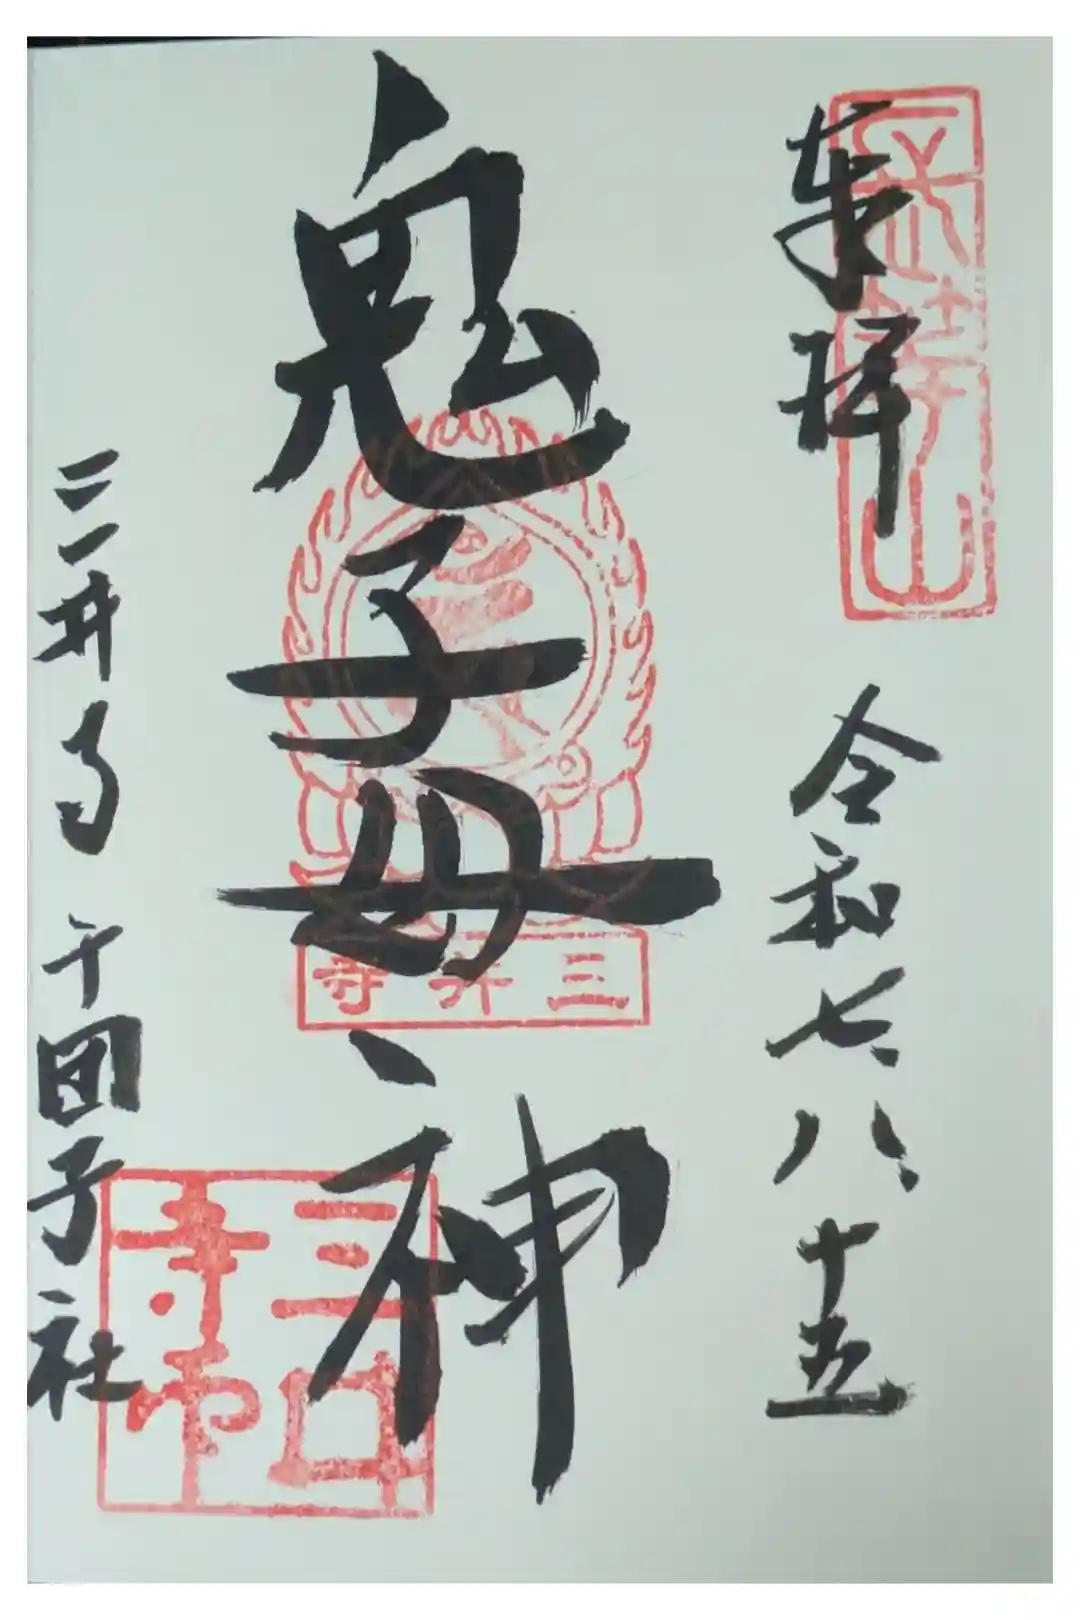 長等山
奉拝
令和七、八、十五
鬼子母神
三井寺
三井寺 千団子社
三井寺印